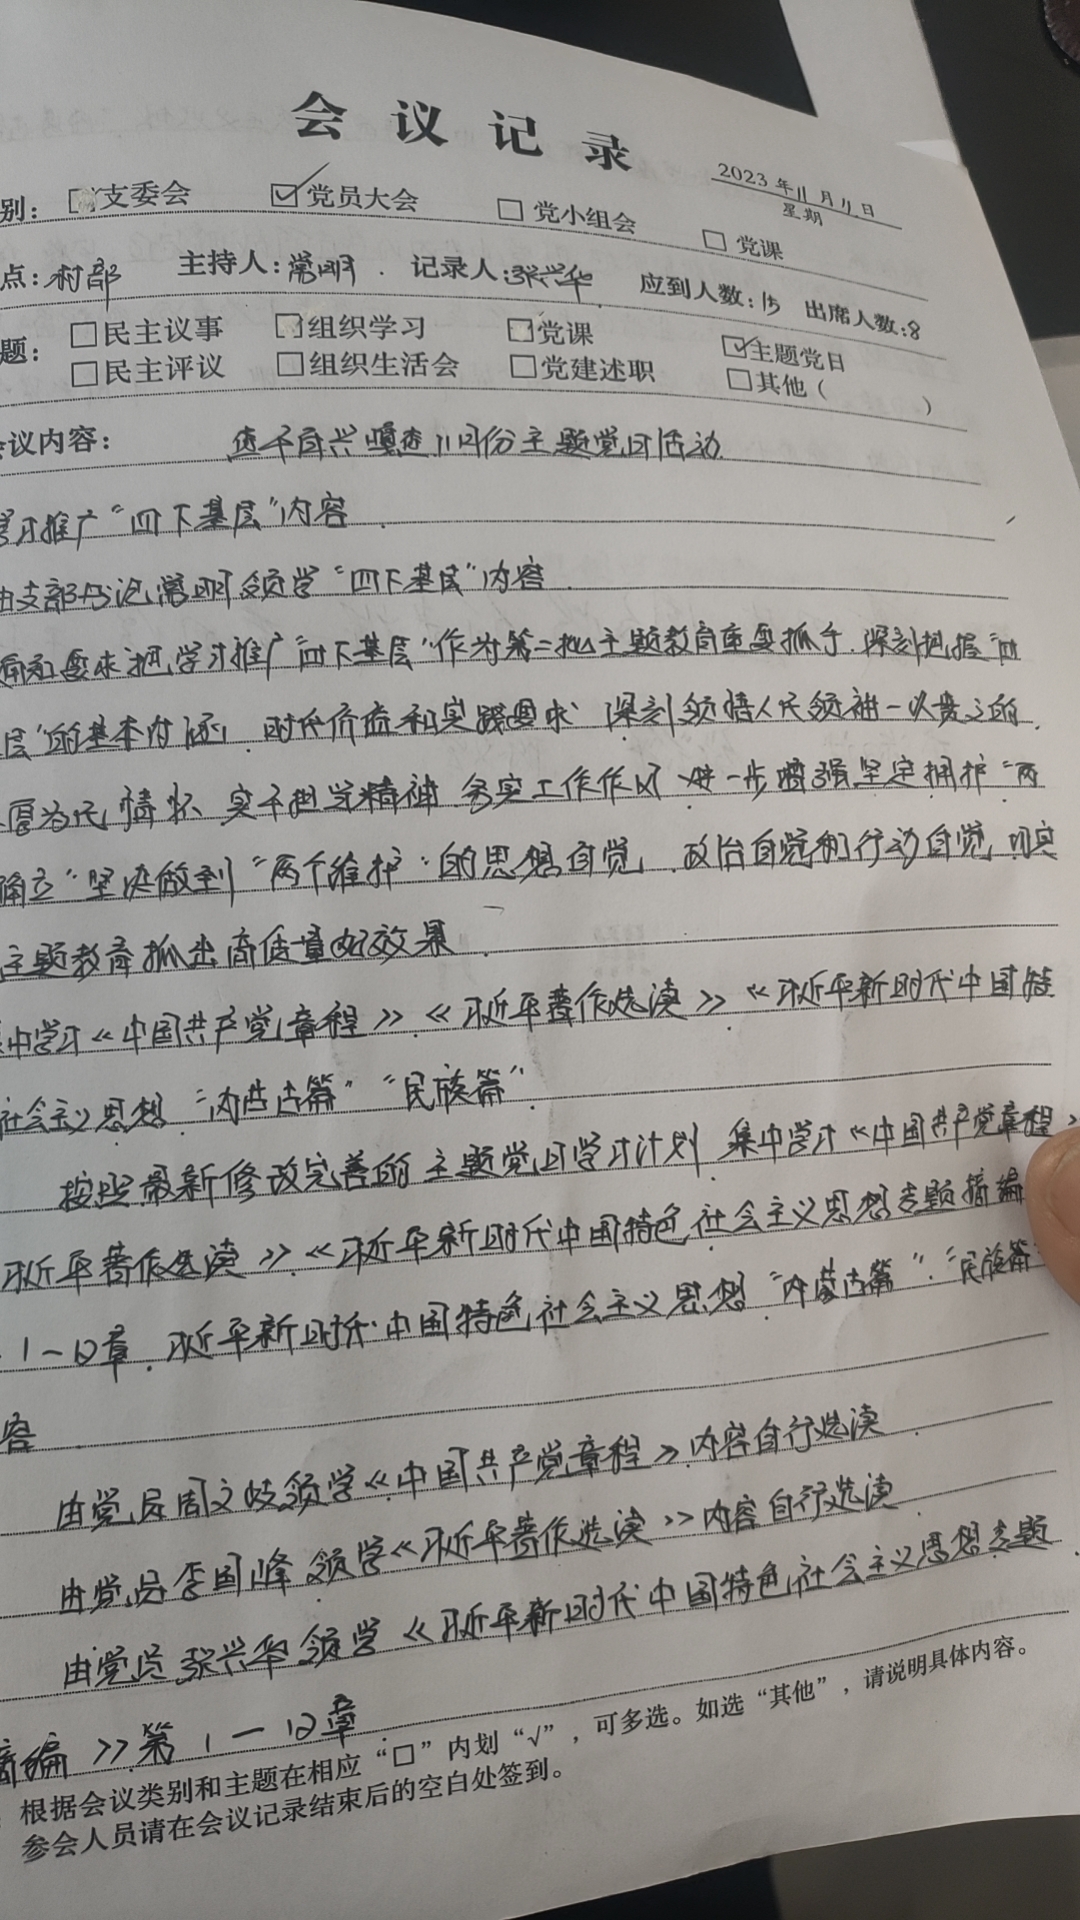 会议记录
2023年11月11日
星期
别: □支委会 ☑党员大会 □党小组会 □党课
点: 村部 主持人: 常明 记录人: 张兴华 应到人数: 15 出席人数: 8
题: □民主议事 □组织学习 □党课 ☑主题党日
□民主评议 □组织生活会 □党建述职 □其他( )
议内容: 兴嘎查11月份主题党日活动
学习推广“四下基层”内容
由支部书记常明领学“四下基层”内容
通知要求把学习推广“四下基层”作为第二批主题教育重要抓手.深刻把握“四
层”的基本内涵,时代价值和实践要求,深刻领悟人民领袖一以贯之的
厚为民情怀 实干担当精神 务实工作作风 进一步增强坚定拥护“两
确立”坚决做到“两个维护”的思想自觉、政治自觉和行动自觉,切实
主题教育抓出高质量好效果
中学习《中国共产党章程》《习近平著作选读》《习近平新时代中国特
社会主义思想“内蒙古篇”“民族篇”
按照最新修改完善的主题党日学习计划 集中学习《中国共产党章程》
习近平著作选读》《习近平新时代中国特色社会主义思想专题摘编
1-10章.习近平新时代中国特色社会主义思想“内蒙古篇”.“民族篇”
容
由党员周文岐领学《中国共产党章程》内容自行选读
由党员李国峰领学《习近平著作选读》内容自行选读
由党员张兴华领学《习近平新时代中国特色社会主义思想专题
摘编》第1-10章
根据会议类别和主题在相应“□”内划“√”，可多选。如选“其他”，请说明具体内容。
参会人员请在会议记录结束后的空白处签到。